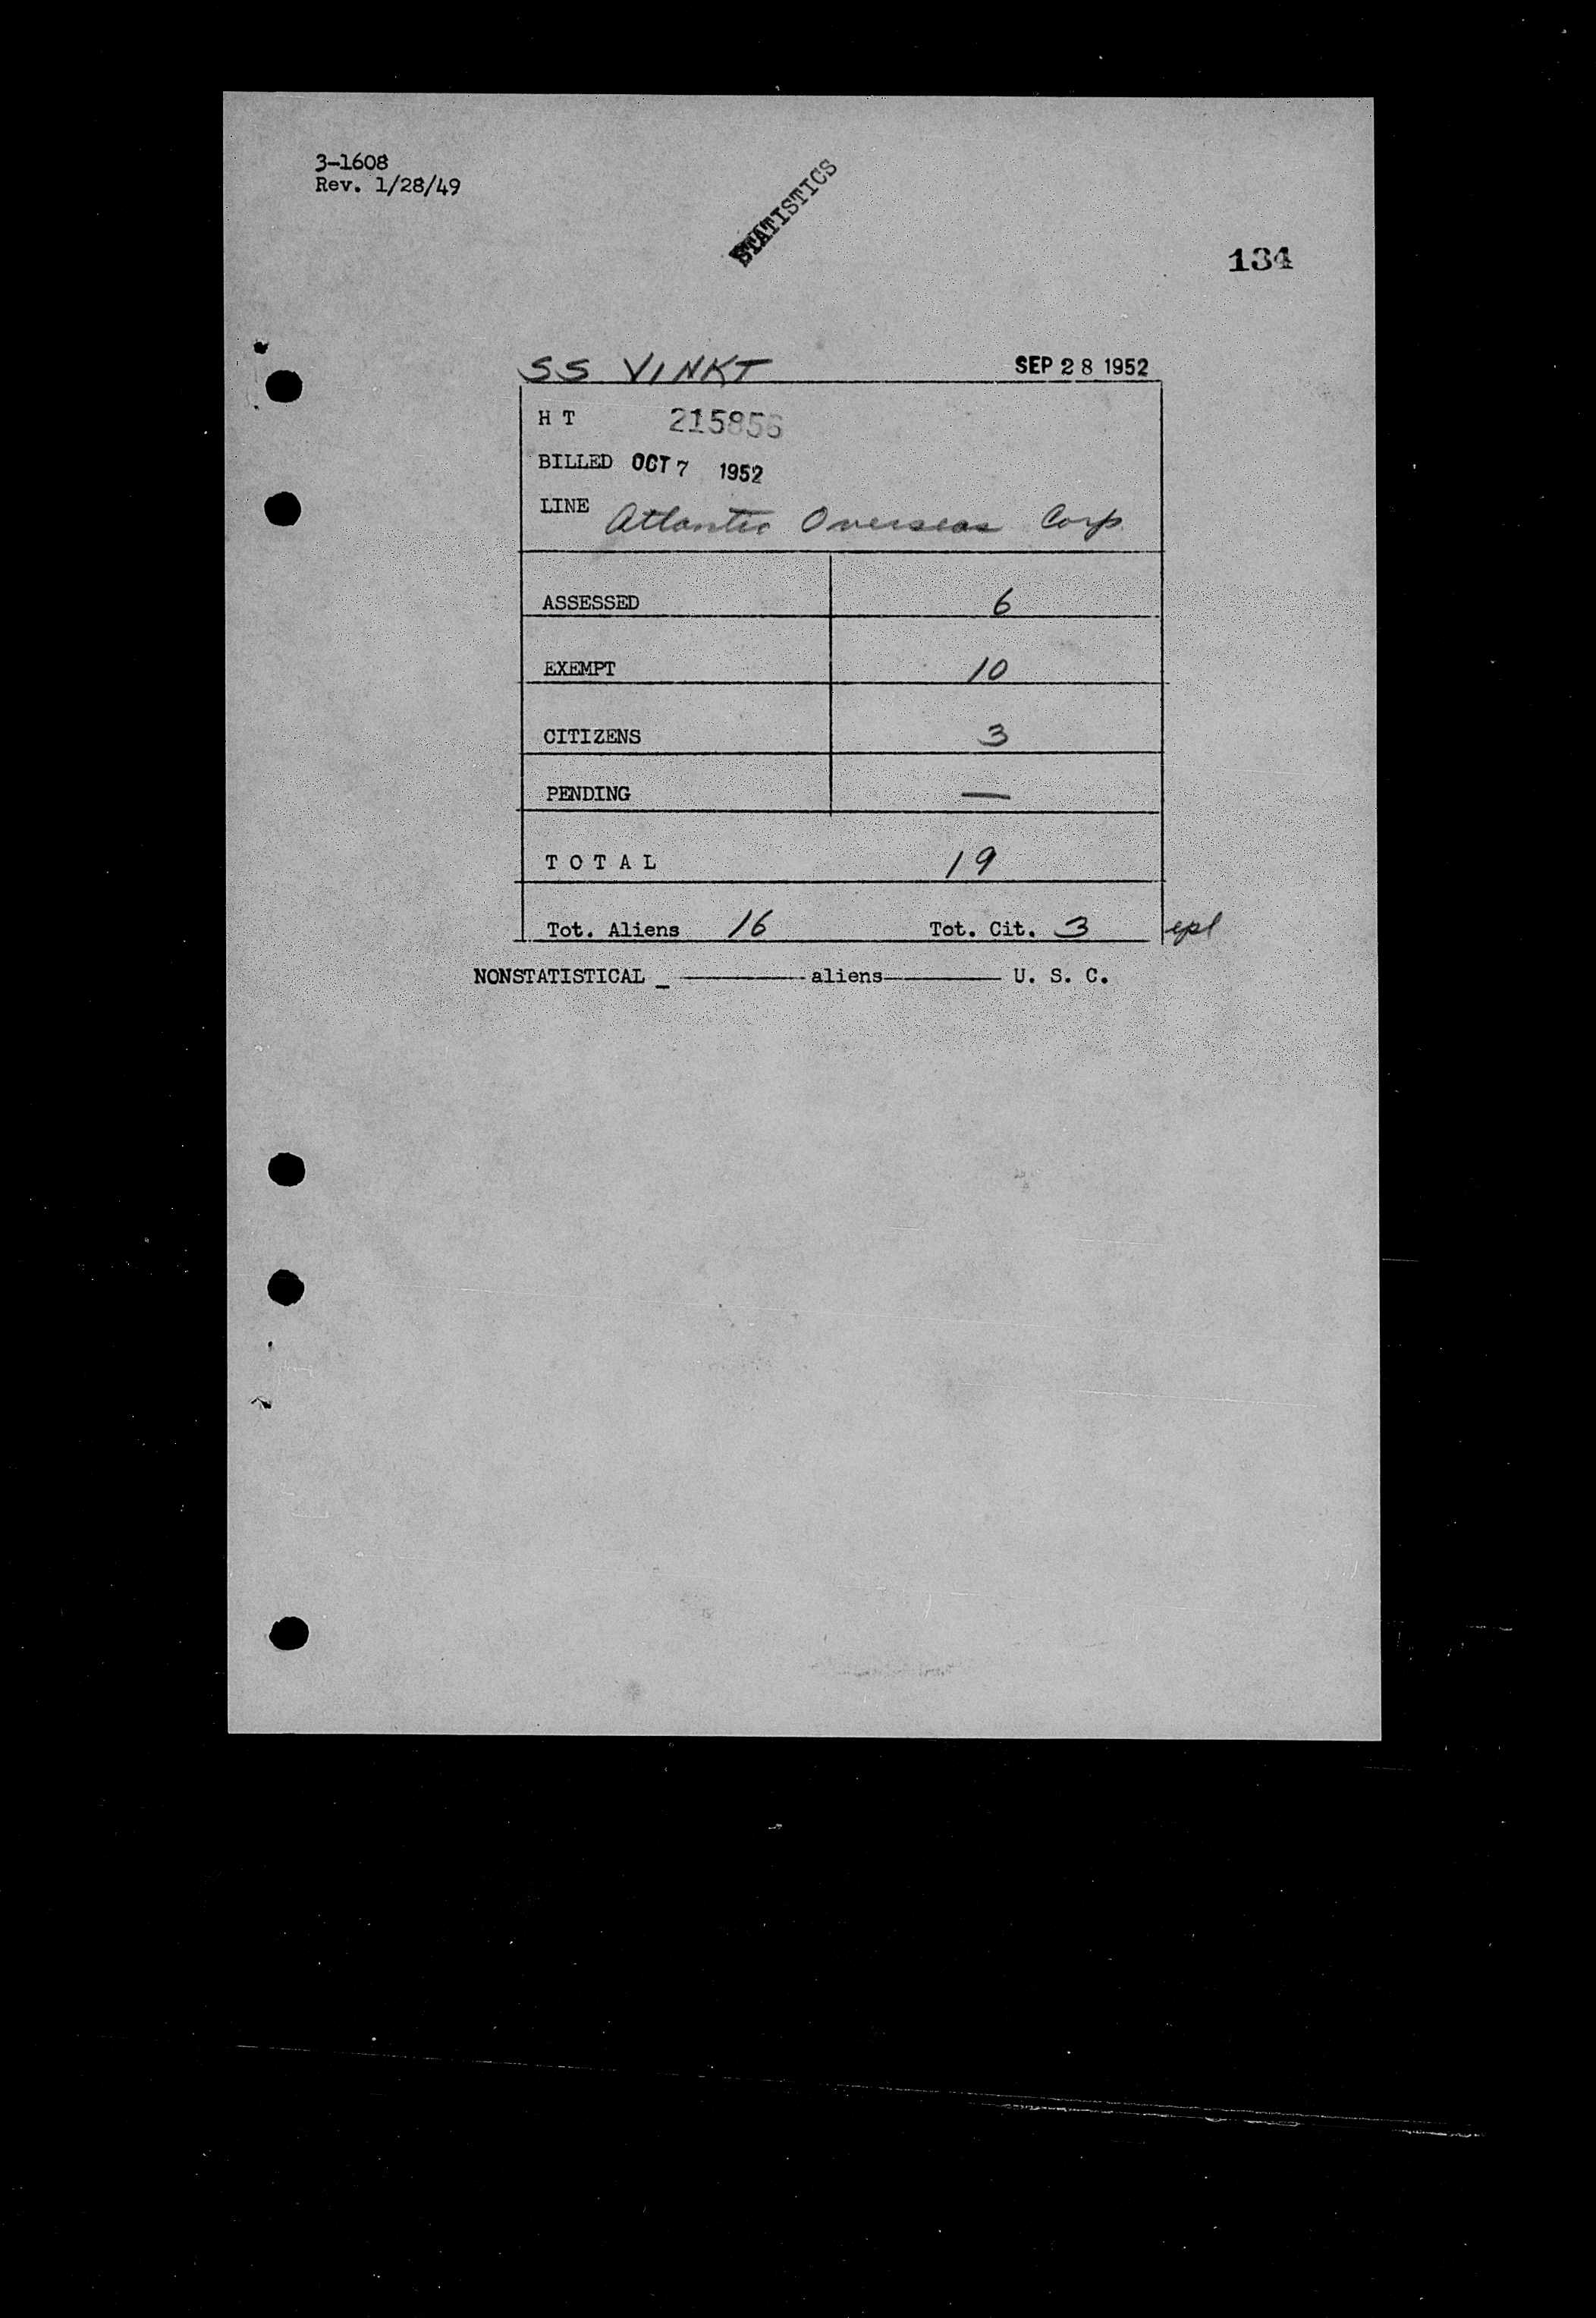 3-1608
Rev. 1/28/49
STATISTICS
134
SS VINKT SEP 28 1952
H T 215856
BILLED OCT 7 1952
LINE Atlantic Overseas Corp.
ASSESSED 6
EXEMPT 10
CITIZENS 3
PENDING —
T O T A L 19
Tot. Aliens 16 Tot. Cit. 3
NONSTATISTICAL _ ———— aliens ———— U. S. C.